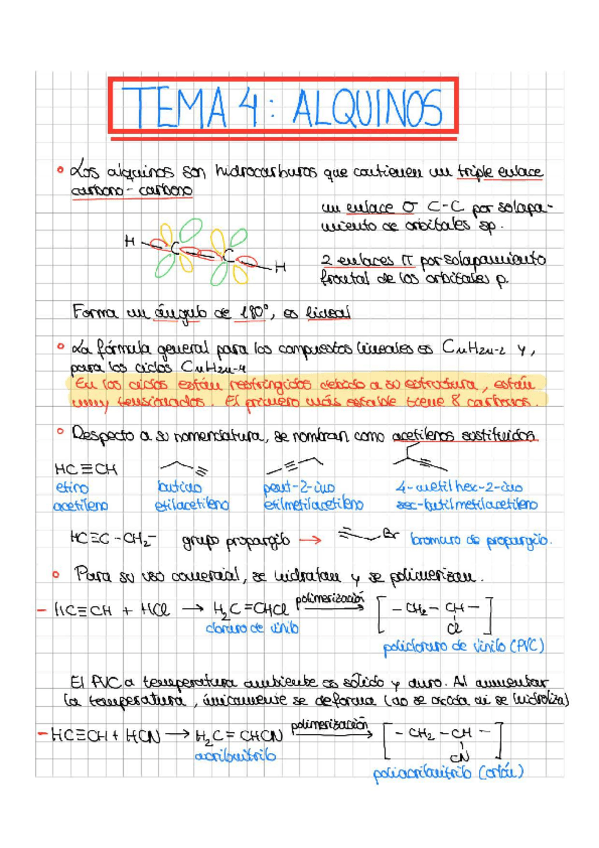 TEMA 4: ALQUINOS
Los alquinos son hidrocarburos que contienen un triple enlace
carbono-carbono
un enlace σ C-C por solapa-
miento de orbitales sp.
2 enlaces π por solapamiento
frontal de los orbitales p.
H C C H
Forma un ángulo de 180°, es lineal
La fórmula general para los compuestos lineales es CnH2n-2 y,
para los ciclos CnH2n-4
En los ciclos están restringidos debido a su estructura, están
muy tensionados. El primero más estable tiene 8 carbonos.
Respecto a su nomenclatura, se nombran como acetilenos sustituidos
HC≡CH
etino butino pent-2-ino 4-metilhex-2-ino
acetileno etilacetileno etilmetilacetileno sec-butilmetilacetileno
HC≡C-CH2- grupo propargilo → Br bromuro de propargilo.
Para su uso comercial, se hidratan y se polimerizan.
- HC≡CH + HCl → H2C=CHCl polimerización [-CH2-CH-]
Cl
cloruro de vinilo
policloruro de vinilo (PVC)
El PVC a temperatura ambiente es sólido y duro. Al aumentar
la temperatura, únicamente se deforma (no se oxida ni se hidroliza)
- HC≡CH + HCN → H2C=CHCN polimerización [-CH2-CH-]
CN
acrilonitrilo
poliacrilonitrilo (orlón)